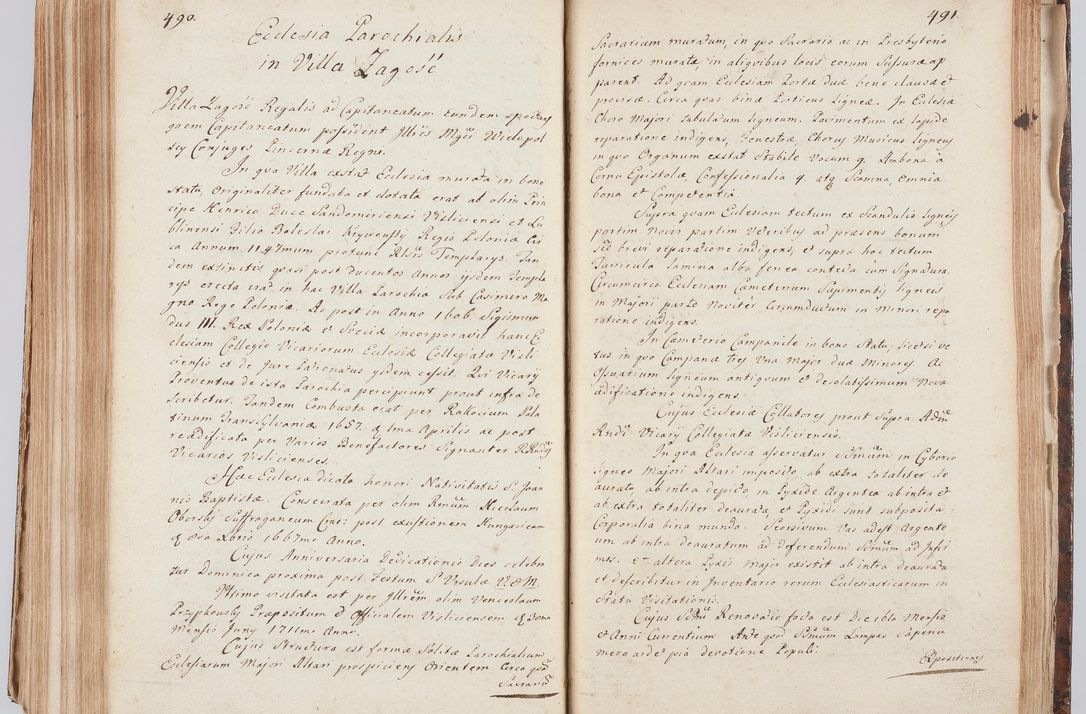 490.
Ecclesia Parochialis
in Villa Zagość
Villa Zagość Regalis ad Capitaneatum eundem spectans
quem Capitaneatum possident Illres Mgci Wielopol
scy Conjuges Pincernæ Regni.
In qua Villa exstat Ecclesia murata in bono
statu, Originaliter fundata et dotata erat ab olim Prin
cipe Henrico Duce Sandomiriensi Visliciensi et Lu
blinensi Filio Boleslai Krzywousty Regis Poloniæ Cir
ca Annum 1147mum protunc Templarys. Tan
dem extinctis quasi post ducentos Annos ijsdem Templa
rys erecta erat in hac Villa Parochia Sub Casimiro Ma
gno Rege Poloniæ. Ac post in Anno 1606 Sigismun
dus III. Rex Poloniæ et Sveciæ incorporavit hanc Ec
clesiam Collegio Vicariorum Ecclesiæ Collegiatæ Visli
ciensis et de Jure Patronatus ysdem cessit. Qui Vicary
Proventus de ista Parochia percipiunt prout infra de
scribetur. Tandem Combusta erat per Rakocium Pala
tinum Transylvaniæ 1657. d 1ma Aprilis ac post
reædificata per Varios Benefactores Signanter RRndos
Vicarios Vislicienses.
Hæc Ecclesia dicata honori Nativitatis S. Joan
nis Baptistæ. Consecrata per olim Rmum Nicolaum
Oborski Suffraganeum Crac: post exustionem Hungaricam
d 8va Xbris 1667mo Anno.
Cujus Anniversaria Dedicationis Dies celebra
tur Dominica proxima post Festum S. Ursulæ V. et M.
Ultimo visitata est per Illrem olim Venceslaum
Przypkowski Præpositum et Officialem Visliciensem d 30ma
Mensis Juny 1711mo Anno.
Cujus Structura est formæ Solitæ Parochialium
Ecclesiarum Majori Altari prospiciens Orientem Circa quod
Sacrariu
491.
Sacrarium muratum, in quo Sacrario ac in Presbyterio
fornices muratæ, in aliquibus locis eorum Scissuræ ap
parent. Ad quam Ecclesiam Portæ duæ bene clausæ et
provisæ. Circa quas binæ Porticus ligneæ. In Ecclesiæ
Choro Majori Tabulatum ligneum. Pavimentum ex lapide
reparatione indigens, Fenestræ, Chorus Musicus ligneus
in quo Organum exstat Stabile Vocum 9. Ambona a
Cornu Epistolæ, Confessionalia 4. atq Scamna, omnia
bona et Competentia.
Supra quam Ecclesiam tectum ex Scandulis ligneis
partim Novis partim Veteribus ad præsens bonum
sed brevi reparatione indigens, et supra hoc tectum
Turricula lamina alba ferrea contecta cum Signatura.
Circumcirca Ecclesiam Cæmeterium Sæpimentis ligneis
in Majori parte Noviter Circumductum in Minori repa
ratione indigens.
In Cæmeterio Campanile in bono Statu, licet ve
tus in quo Campanæ tres Una Major duæ Minores. Ac
Ossuarium ligneum antiquum et desolatissimum Nova
ædificatione indigens.
Cujus Ecclesiæ Collatores prout Supra Admo
Rndi Vicary Collegiatæ Visliciensis.
In qua Ecclesia asservatur Ssmum in Cyborio
ligneo Majori Altari imposito, ab extra totaliter de
aurato, ab intra depicto, in Pyxide Argentea ab intra et
ab extra totaliter deaurata, et Pyxidi sunt subposita
Corporalia bina munda. Seorsivum Vas adest Argente
um ab intra deauratum ad deferendum Ssmum ad Infir
mos. et altera Pyxis major existit ab intra deaurata
et describitur in Inventario rerum Ecclesiasticarum in
Statu Visitationis.
Cujus Ssmi Renovatio facta est Die ibla Mensis
et Anni Currentium. Ante quod Ssmum Lampas Sæpenu
mero ardet pia devotione Populi.
Expositiones